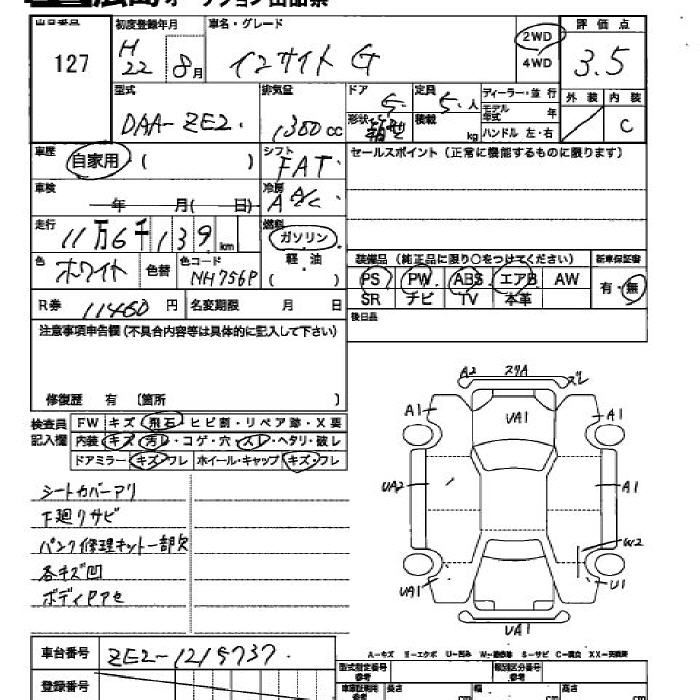 出品番号 初度登録年月 車名・グレード 評価点
127 H22 8月 インサイト G 2WD 4WD 3.5
型式 排気量 ドア 定員 ディーラー・並行 外装 内装
DAA-ZE2 1300cc 5 5人 モデル年式 年
形状 箱型 積載 kg ハンドル 左・右 C
車歴 自家用 ( ) シフト FAT セールスポイント(正常に機能するものに限ります)
車検 年 月( 日) 冷房 A A/C
走行 11万6千139km 燃料 ガソリン
軽油
( )
色 ホワイト 色替 色コード NH756P
装備品(純正品に限り○をつけてください) 新車保証書
PS PW ABS エアB AW 有・無
SR ナビ TV 本革
R券 11460円 名変期限 月 日
後日品
注意事項申告欄(不具合内容等は具体的に記入して下さい)
修復歴 有 〔箇所 〕
検査員記入欄 FW キズ・飛石・ヒビ割・リペア跡・X要
内装 キズ・汚レ・コゲ・穴・スレ・ヘタリ・破レ
ドアミラー キズ・ワレ ホイール・キャップ キズ・ワレ
シートカバーアリ
下廻りサビ
パンク修理キット一部欠
各キズ凹
ボディアセ
A2 スリA ズレ
A1 UA1 A1
UA2 A1
W2
UA1 U1
UA1
A-キズ E-エクボ U-凹み W-補修跡 S-サビ C-腐食 XX-交換済
車台番号 ZE2-1215737
登録番号
型式指定番号 類別区分番号
長さ cm 幅 cm 高さ cm